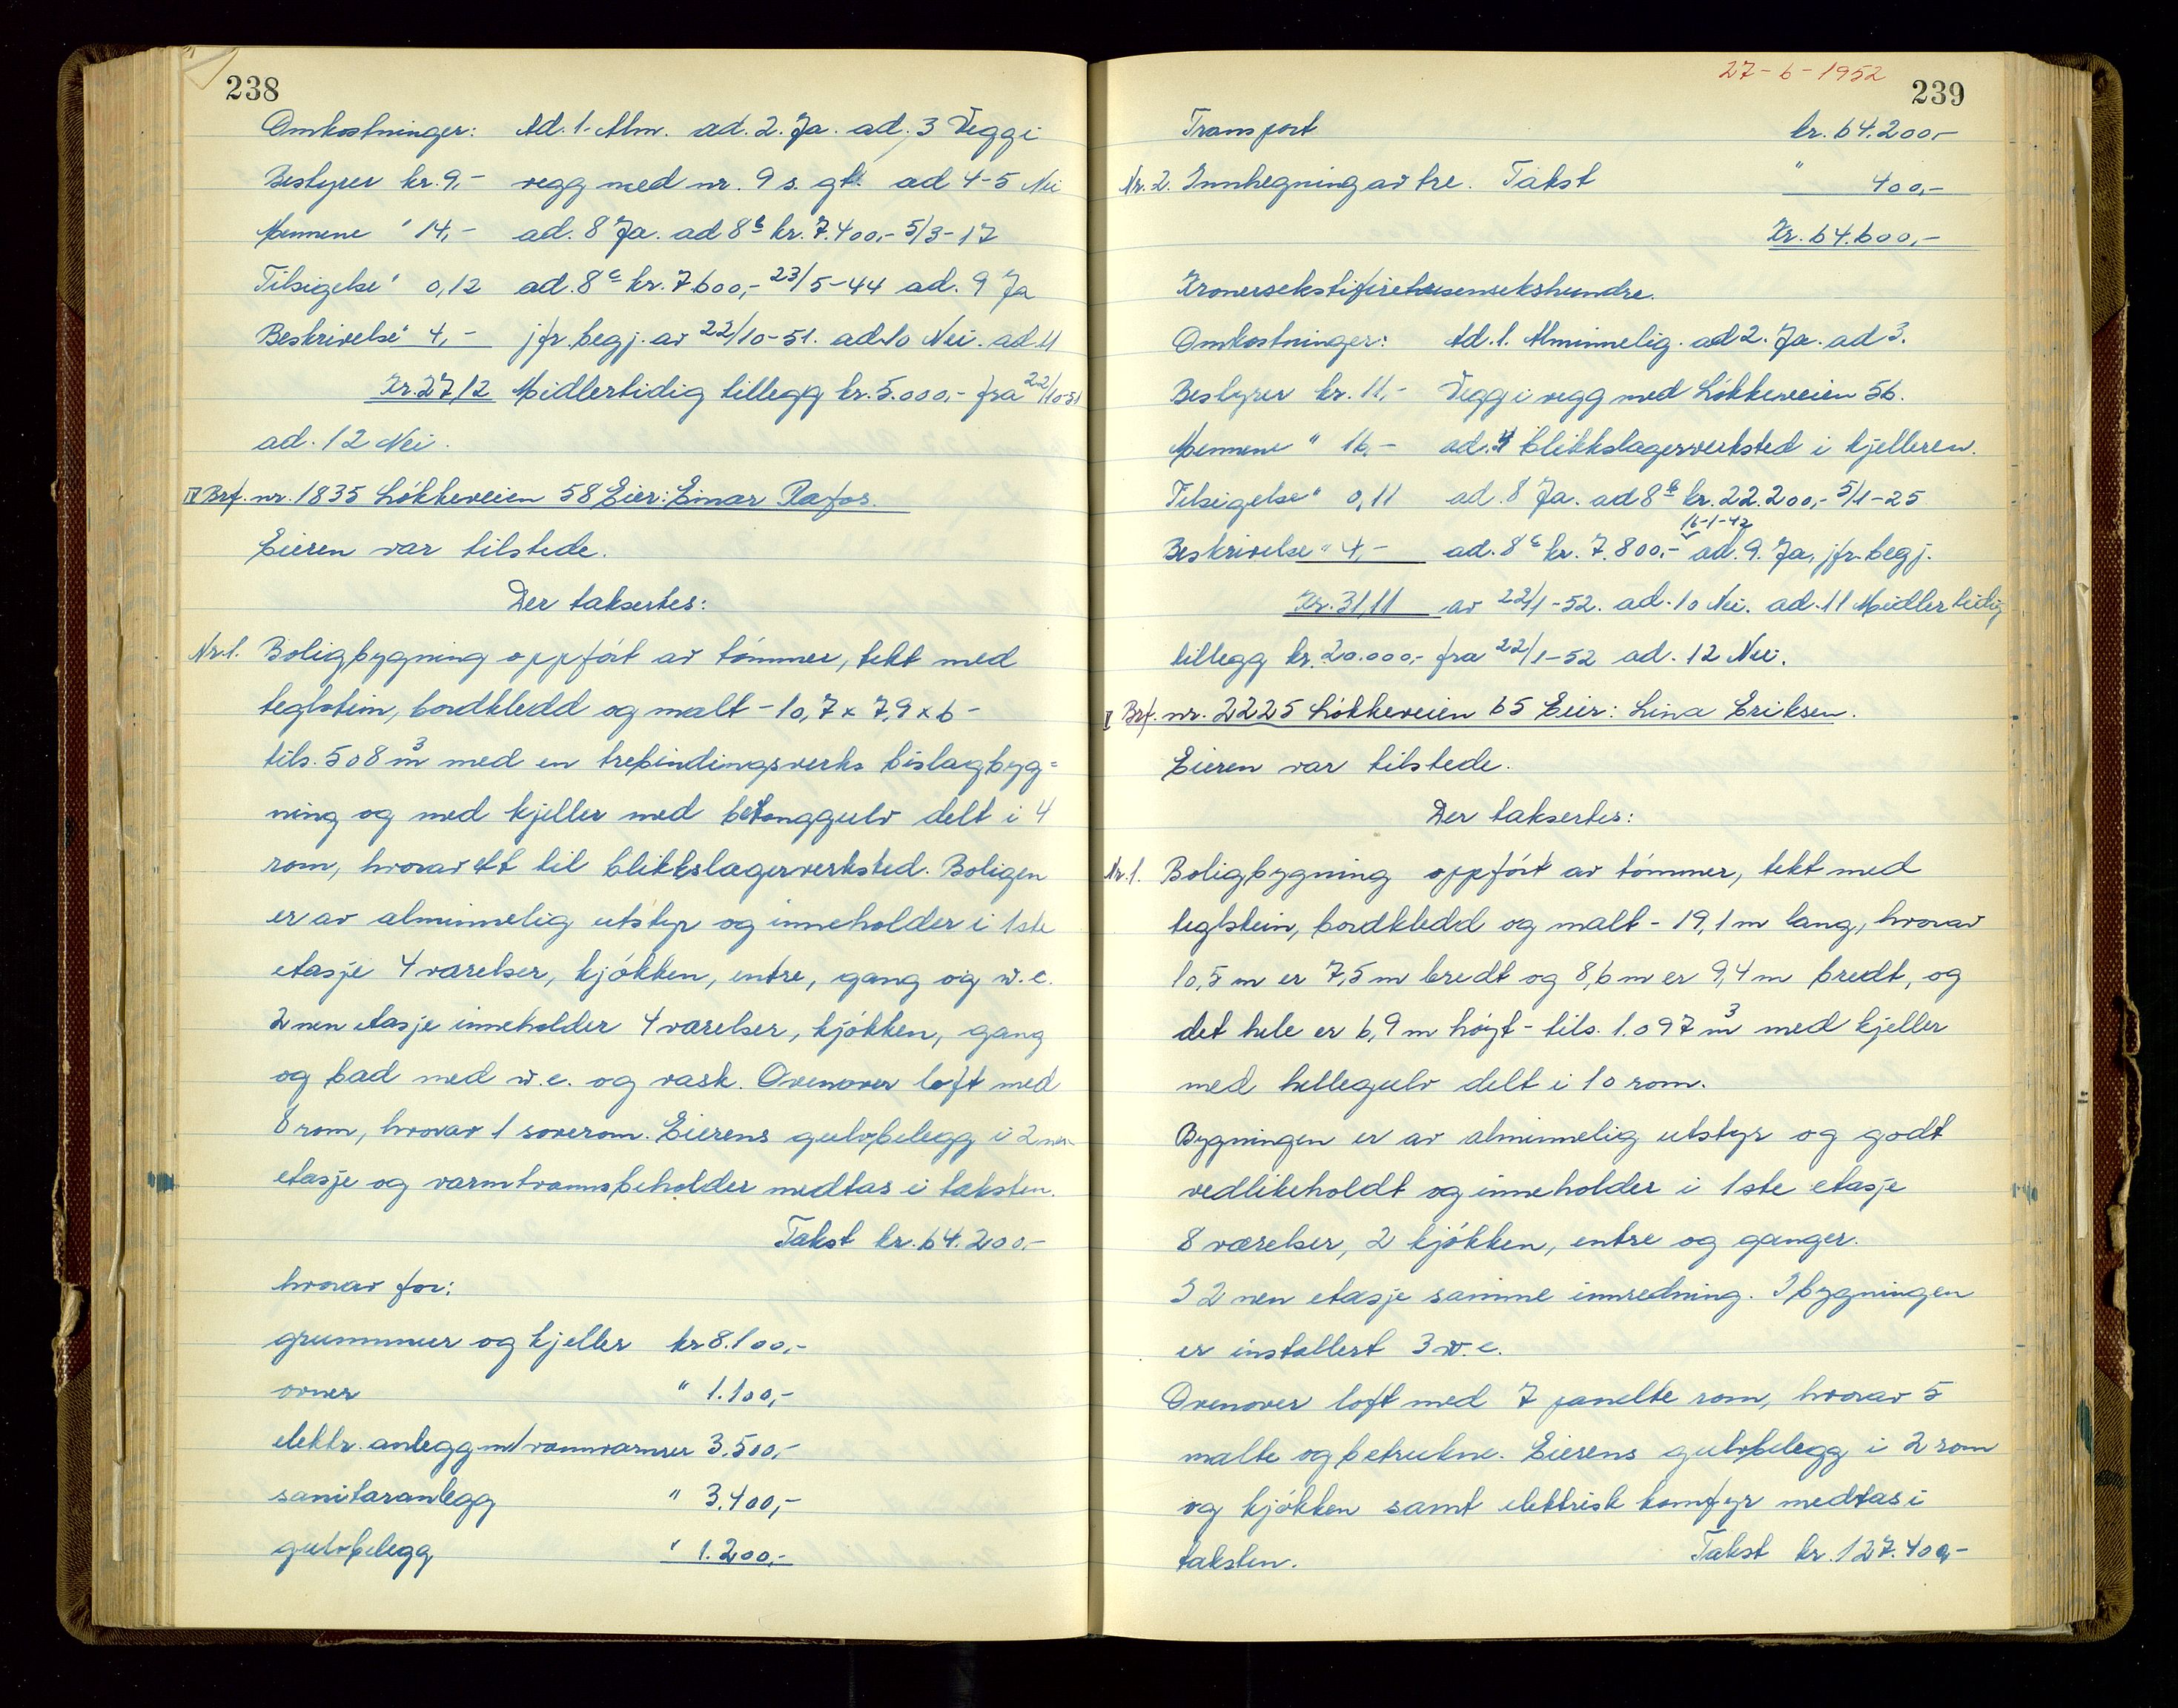 238
Omkostninger: Ad. 1. Alm. ad. 2. Ja. ad. 3 Vegg i
Bestyrer kr. 9,- vegg med nr. 9 s. gt. ad 4-5 Nei
Mennene " 14,- ad. 8 Ja. ad 8b kr. 7.400,- 5/3-17
Tilsigelse " 0,12 ad. 8c kr. 7.600,- 23/5-44 ad. 9 Ja
Beskrivelse " 4,- jfr. begj. av 22/10-51. ad. 10 Nei. ad. 11
Kr. 27,12 Midlertidig tillegg kr. 5.000,- fra 22/10-51
ad. 12 Nei.
IV Brf. nr. 1835 Løkkeveien 58 Eier: Einar Rafos.
Eieren var tilstede.
Der taksertes:
Nr. 1. Boligbygning oppført av tømmer, tekt med
teglstein, bordkledd og malt - 10,7 x 7,9 x 6 -
tils. 508 m3 med en trebindingsverks bislagbyg=
ning og med kjeller med betonggulv delt i 4
rom, hvorav ett til blikkslagerverksted. Boligen
er av alminnelig utstyr og inneholder i 1ste
etasje 4 værelser, kjøkken, entre, gang og w.c.
2nen etasje inneholder 4 værelser, kjøkken, gang
og bad med w.c. og vask. Ovenover loft med
8 rom, hvorav 1 soverom. Eierens gulvbelegg i 2nen
etasje og varmtvannsbeholder medtas i taksten.
Takst kr. 64.200,-
hvorav for:
grunnmur og kjeller kr 8.100,-
ovner " 1.100,-
elektr. anlegg m/vannvarmer 3.500,-
sanitæranlegg " 3.400,-
gulvbelegg " 1.200,-
27-6-1952
239
Transport kr. 64.200,-
Nr. 2. Innhegning av tre. Takst " 400,-
Kr. 64.600,-
Kronersekstifiretusensekshundre.
Omkostninger: Ad. 1. Alminnelig. ad 2. Ja. ad 3.
Bestyrer kr. 11,- Vegg i vegg med Løkkeveien 56.
Mennene " 16,- ad. 4 blikkslagerverksted i kjelleren.
Tilsigelse " 0,11 ad. 8 Ja. ad 8b kr. 22.200,- 5/1-25
16-1-42
Beskrivelse " 4,- ad. 8c kr. 7.800,- ad. 9. Ja, jfr. begj.
Kr. 31,11 av 22/1-52. ad. 10 Nei. ad. 11 Midlertidig
tillegg kr. 20.000,- fra 22/1-52 ad. 12 Nei.
V Brf. nr. 2225 Løkkeveien 65 Eier: Lina Eriksen.
Eieren var tilstede.
Der taksertes:
Nr. 1. Boligbygning oppført av tømmer, tekt med
teglstein, bordkledd og malt - 19,1 m lang, hvorav
10,5 m er 7,5 m bredt og 8,6 m er 9,4 m bredt, og
det hele er 6,9 m høyt - tils. 1.097 m3 med kjeller
med hellegulv delt i 10 rom.
Bygningen er av alminnelig utstyr og godt
vedlikeholdt og inneholder i 1ste etasje
8 værelser, 2 kjøkken, entre og ganger.
I 2nen etasje samme innredning. I bygningen
er installert 3 w.c.
Ovenover loft med 7 panelte rom, hvorav 5
malte og betrukne. Eierens gulvbelegg i 2 rom
og kjøkken samt elektrisk komfyr medtas i
taksten. Takst kr. 127.400,-